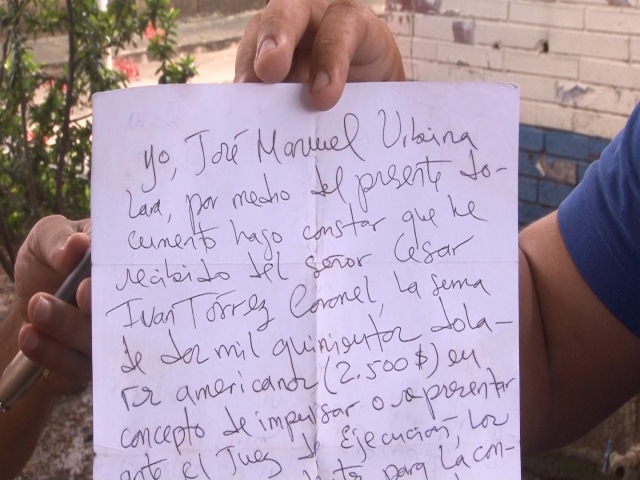 Yo, José Manuel Urbina
Lara, por medio del presente do-
cumento hago constar que he
recibido del señor César
Ivan Tórrez Coronel, la suma
de dos mil quinientos dola-
res americanos (2.500 $) en
concepto de impulsar o representar
ante el Juez de Ejecución, los
para la con-